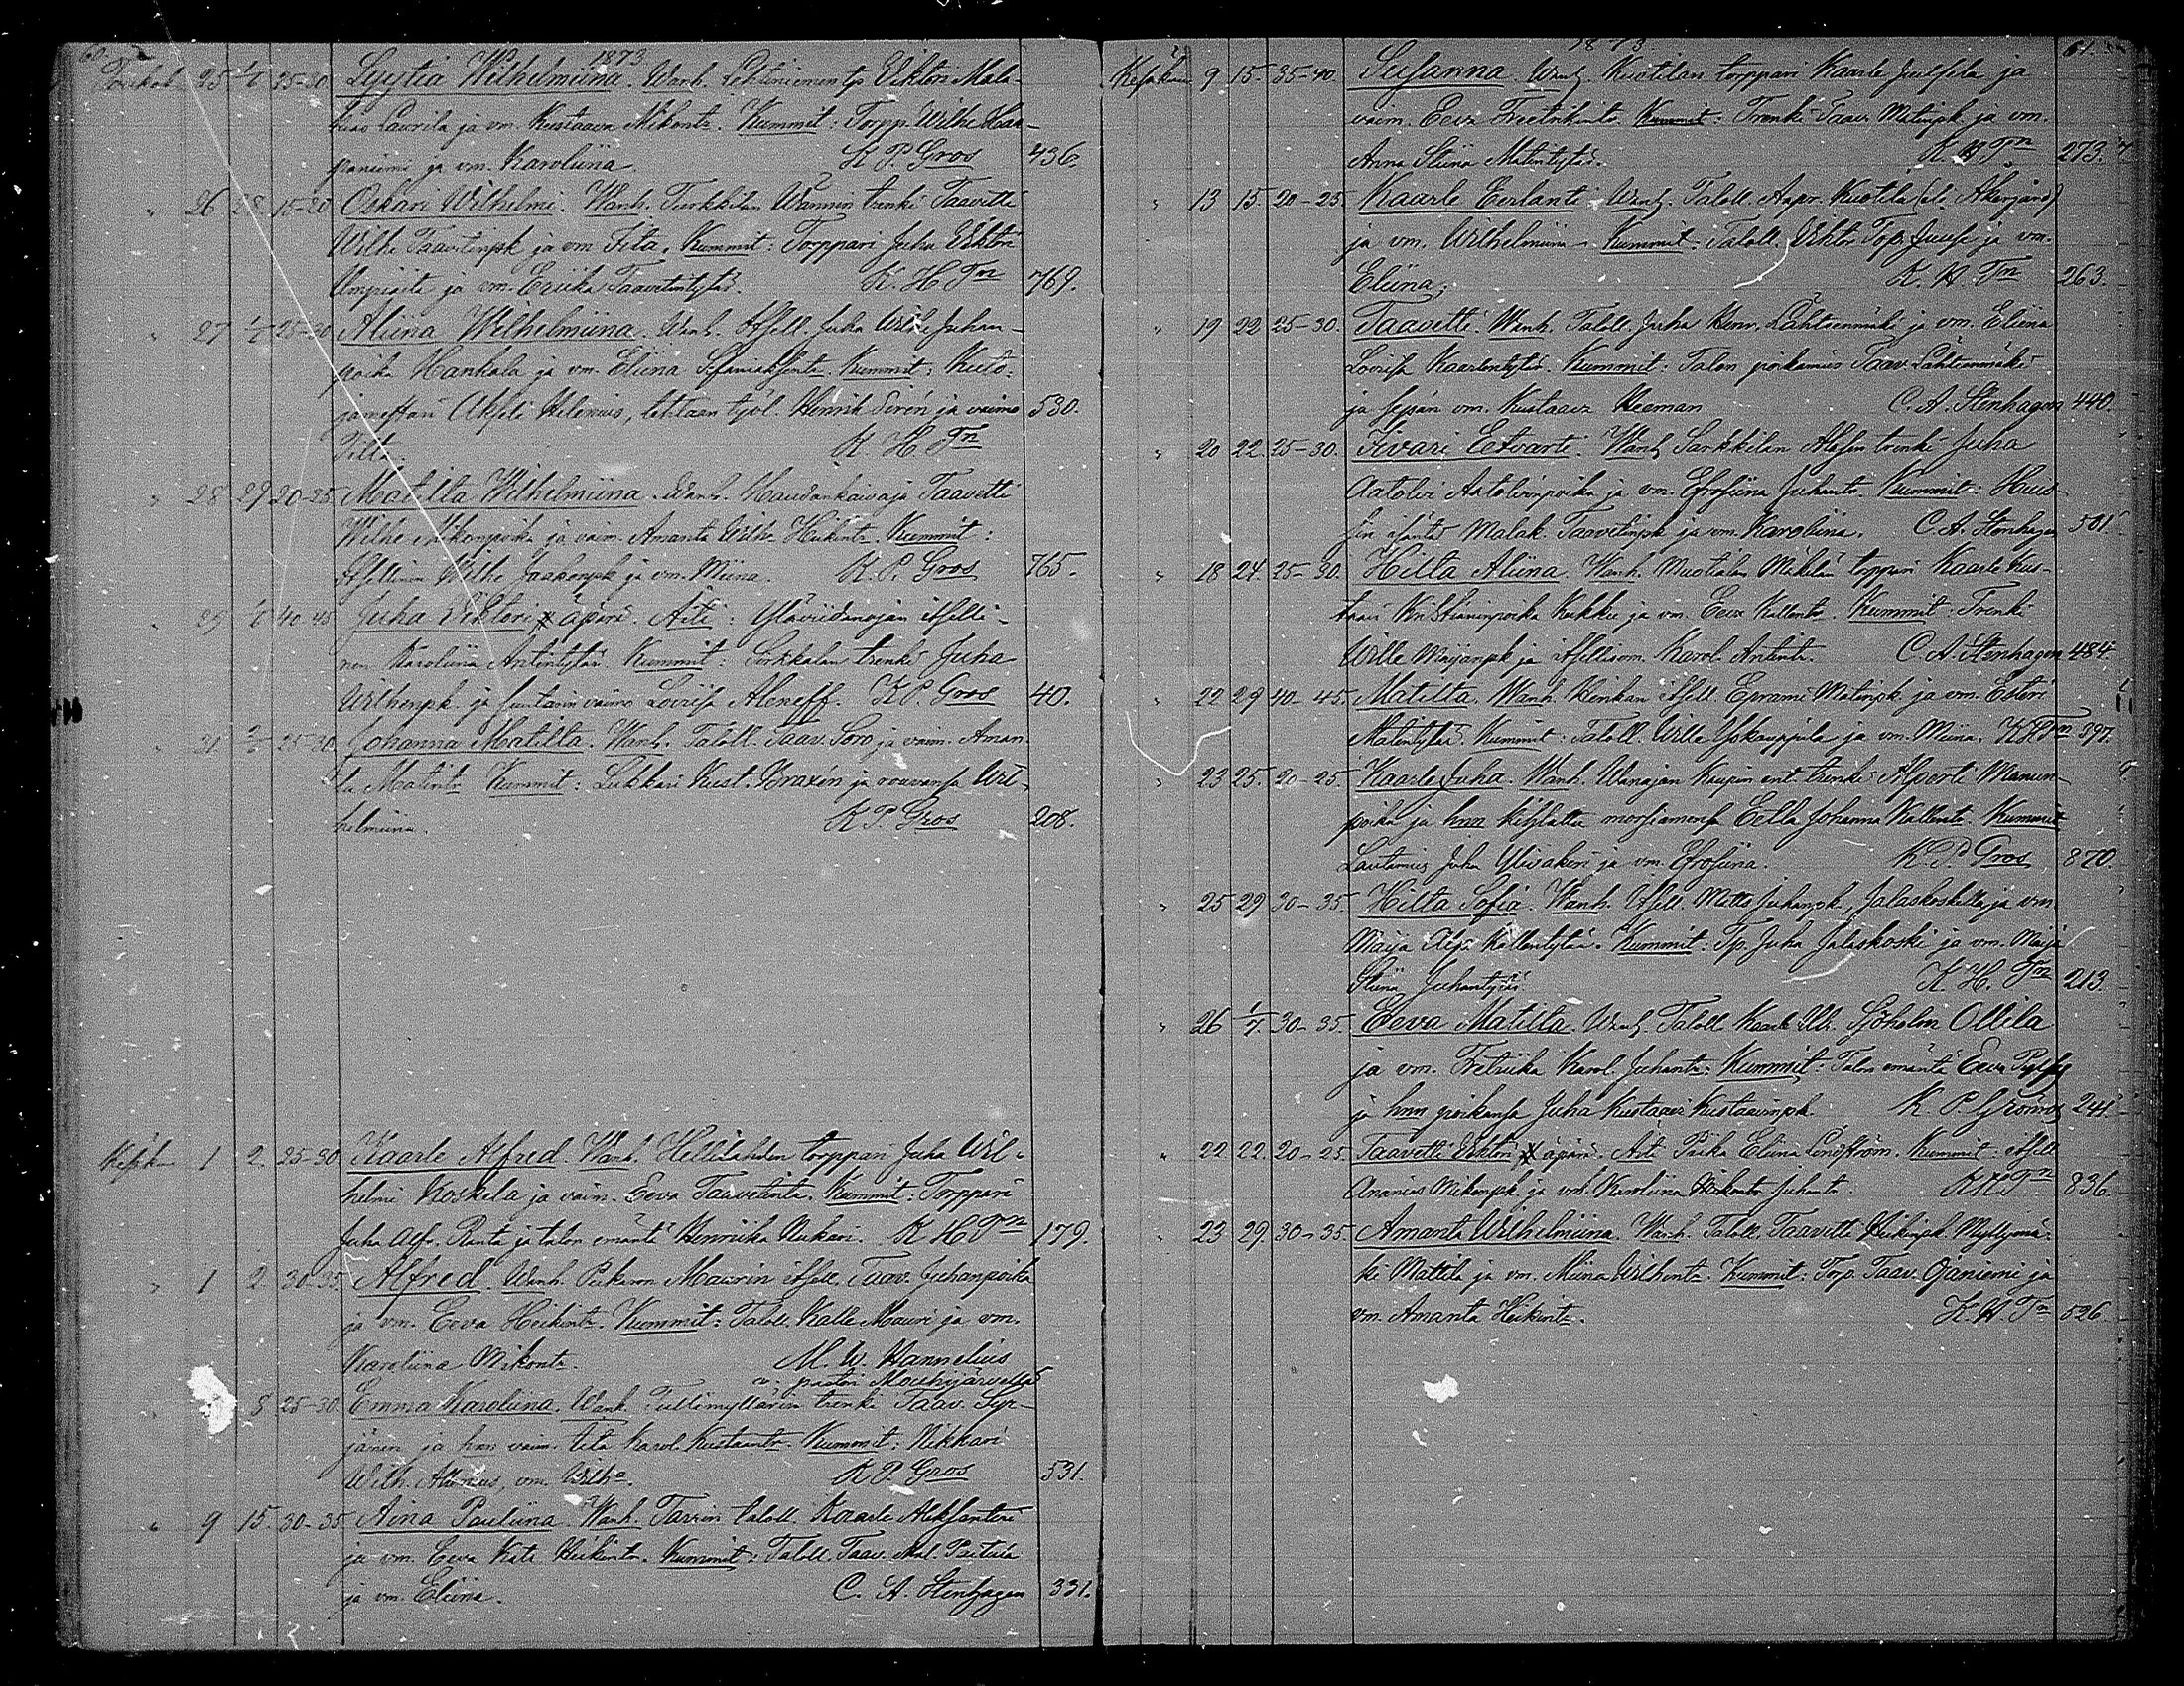 60. 1873.
Toukok. 25 1/6 25-30 Lyytia Wilhelmiina. Wanh. Lehtiniemen tp Viktori Mala-
kias Laurila ja vm. Kustaava Mikontr. Kummit: Torpp. Wilhe Haa-
paniemi ja vm. Karoliina. K. P. Gros 436.
" 26 28 15-20 Oskari Wilhelmi. Wanh. Wännin trenki Taavetti
Wilhe Taavetinpk ja vm Fita. Kummit: Torppari Juha Viktori
ja vm. Eriika Taavetintytär. K. H. Tn 769.
" 27 1/6 25-30 Aliina Wilhelmiina. Wanh. Itsell. Juha Wilhe Juhan-
poika Hankala ja vm. Eliina Kummit:
Akseli Helenius, työl. Henrik Sirén ja vaimo 530.
K. H. Tn
" 28 29 20-25 Matilta Wilhelmiina. Wanh. Haudankaivaja Taavetti
Wilhe Mikonpoika ja vaim. Amanta Wilhe Heikintr. Kummit:
Itsellinen Wilhe Jaakonpk ja vm. Miina. K. P. Gros 765.
" 29 1/6 40-45 Juha Viktori äpärä. Äiti: itselli-
nen Karoliina Antintytär. Kummit: trenki Juha
Wilhenpk. ja suntarin vaimo Loviisa K. P. Gros 40.
" 31 2/6 25-30 Johanna Matilta. Wanh. Taloll. Taav. Soro ja vaim. Aman-
ta Matintr. Kummit: Lukkari Kust. Braxén ja rouvansa Wil-
helmiina. K. P. Gros 208.
Kesäk 1 2. 25-30 Kaarle Alfred. Wanh. Hellilahden torppari Juha Wil-
helmi Koskela ja vaim. Eeva Taavetintr. Kummit: Torppari
Juha Alfr. Ranta ja talon emäntä Henriika K H Tn 179.
" 1 2 30-35 Alfred. Wanh. Maurin itsell. Taav. Juhanpoika
ja vm. Eeva Heikintr. Kummit: Taloll. Kalle Mauri ja vm.
Karoliina Mikontr. M. W. Hannelius
v. pastori Mouhijärvellä
8 25-30. Emma Karoliina. Wanh. Tullimyllärin trenki Taav. Syr-
jänen ja hnn vaim. Karol. Kustaantr. Kummit: Nikkari
Wilh. vm. Wilha. K. P. Gros 531.
" 9 15. 30-35 Aina Pauliina. Wanh. taloll. Kaarle Aleksanteri
ja vm. Eeva Kati Heikintr. Kummit: Taloll. Taav. Mal.
ja vm. Eliina. C. A. Stenhagen 331.
1873. 61.
Kesäkuu 9 15. 35-40 Susanna. Wanh. Kuotilan torppari Kaarle ja
vaim. Eeva Freetrikintr. Kummit: Trenki Taav. Matinpk ja vm.
Anna Stiina Matintytär. K. H. Tn 273.
" 13 15 20-25 Kaarle Eerlanti. Wanh. Taloll. Aapr. Kuotila
ja vm. Wilhelmiina. Kummit: Taloll. Viktor ja vm.
Eliina. K. H. Tn 263.
" 19 22 25-30. Taavetti. Wanh. Taloll. Juha Henr. Lähteenmäki ja vm. Eliina
Loviisa Kaarlentytär. Kummit: Talon poikamies Taav. Lähteenmäki
ja sepän vm. Kustaava Heeman. C. A. Stenhagen 440.
" 20 22. 25-30. Iivari Eetvarti. Wanh. Sarkkilan trenki Juha
Aatolvi Aatolvinpoika ja vm. Efrosiina Juhantr. Kummit:
isäntä Malak. Taavetinpk ja vm. Karoliina. C. A. Stenhagen 501.
" 18 24. 25-30. Hilta Aliina. Wanh. Muotialan Mäkelän torppari Kaarle Kus-
taav Kristianinpoika Kukku ja vm. Eeva Kallentr. Kummit: Trenki
Wille Maijanpk ja itsellisvm. Karol. Antintr. C. A. Stenhagen 484.
" 22 29 40-45. Matilta. Wanh. itsell. Eprami Matinpk ja vm. Esteri
Matintytär. Kummit: Taloll. Wille Yökauppila ja vm. Miina. K H Tn 397.
" 23 25. 20-25. Kaarle Juha. Wanh. ent. trenki Alpertti Manun-
poika ja hnn kihlattu morsiamensa Eella Johanna Kallentr. Kummit
Lautamies Juha Ylivakeri ja vm. Efrosiina. K. P. Gros 870.
" 25 29 30-35. Hilta Sofia. Wanh. Itsell. Matti Juhanpk, Jalaskoskella ja vm
Maija Kallentytär. Kummit: Tp. Juha Jalaskoski ja vm. Maija
Stiina Juhantytär. K. H. Tn 213.
" 26 1/7 30-35. Eeva Matilta. Wanh. Taloll. Kaarle Sjöholm Ollila
ja vm. Fretriika Karol. Juhantr. Kummit: Talon emäntä Eeva
ja hnn poikansa Juha Kustaavi Kustaavinpk. K. P. Grönroos 241.
" 22 22. 20-25. Taavetti Viktori äpärä. Äiti Piika Eliina Lindström. Kummit: itsell
Ananias Mikonpk ja vm. Karoliina Juhantr. K H Tn 836.
" 23 29. 30-35. Amanta Wilhelmiina. Wanh. Taloll. Taavetti Heikinpk Myllymä-
ki Mattila ja vm. Miina Wilhentr. Kummit: Torp. Taav. Ojaniemi ja
vm. Amanta Heikintr. K. H. Tn 526.